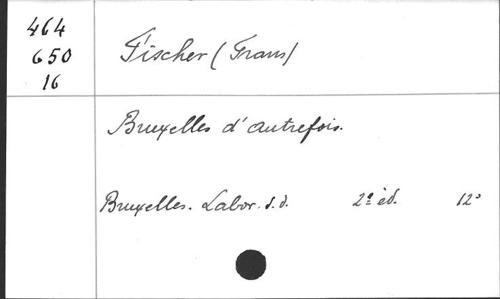 464
650
16
Fischer (Frans)
Bruxelles d'autrefois.
Bruxelles. Labor. s. d. 2e éd. 12°